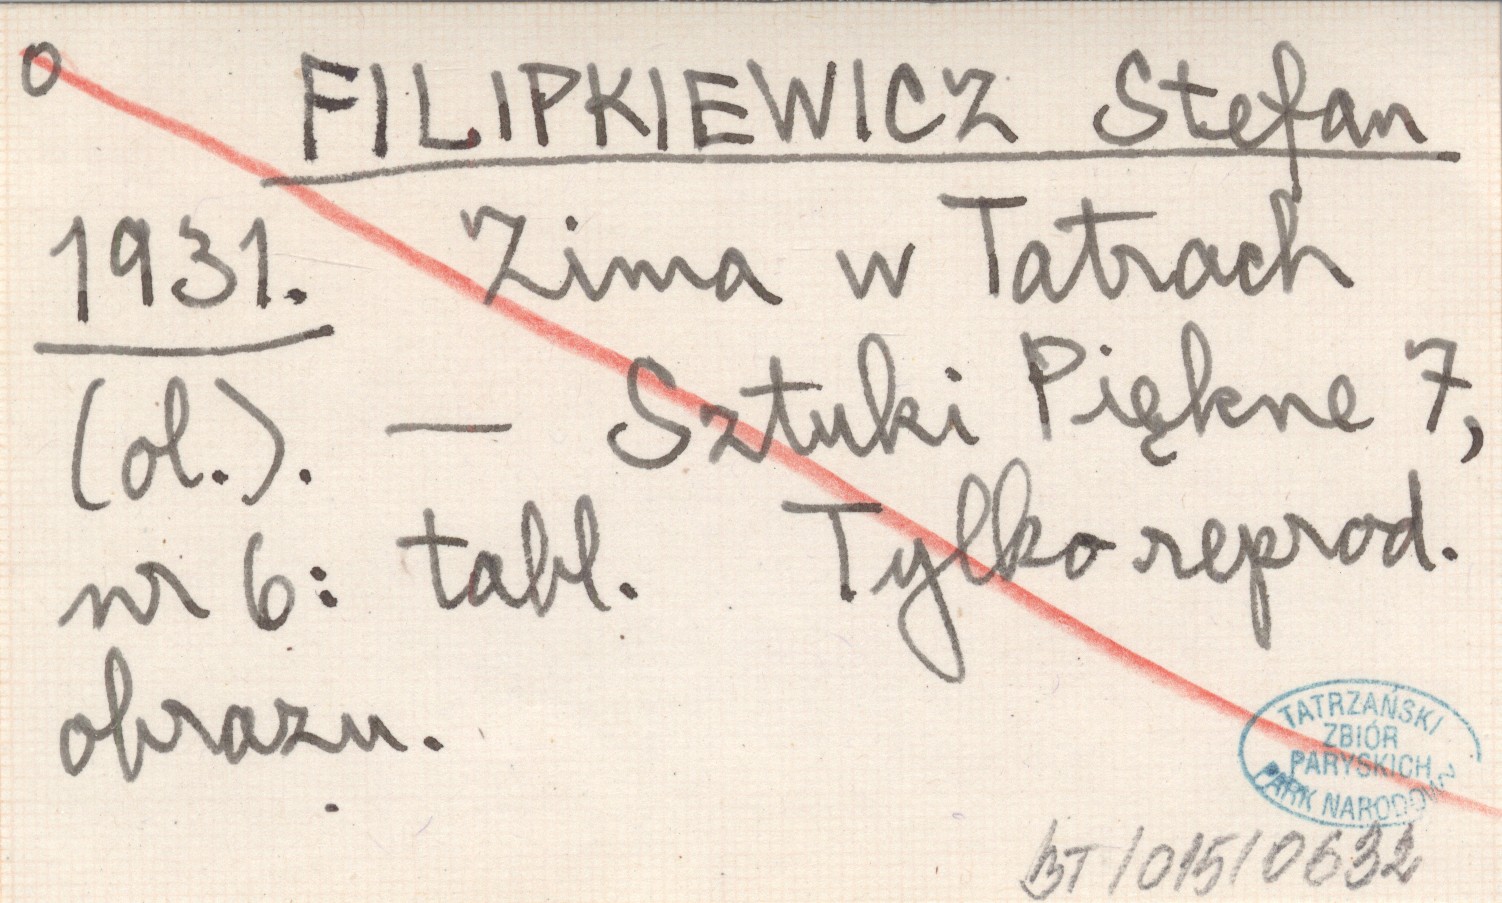 o FILIPKIEWICZ Stefan
1931. Zima w Tatrach
(ol.). — Sztuki Piękne 7,
nr 6: tabl. Tylko reprod.
obrazu.
TATRZAŃSKI
ZBIÓR
PARYSKICH
PARK NARODOWY
BT/015/0632